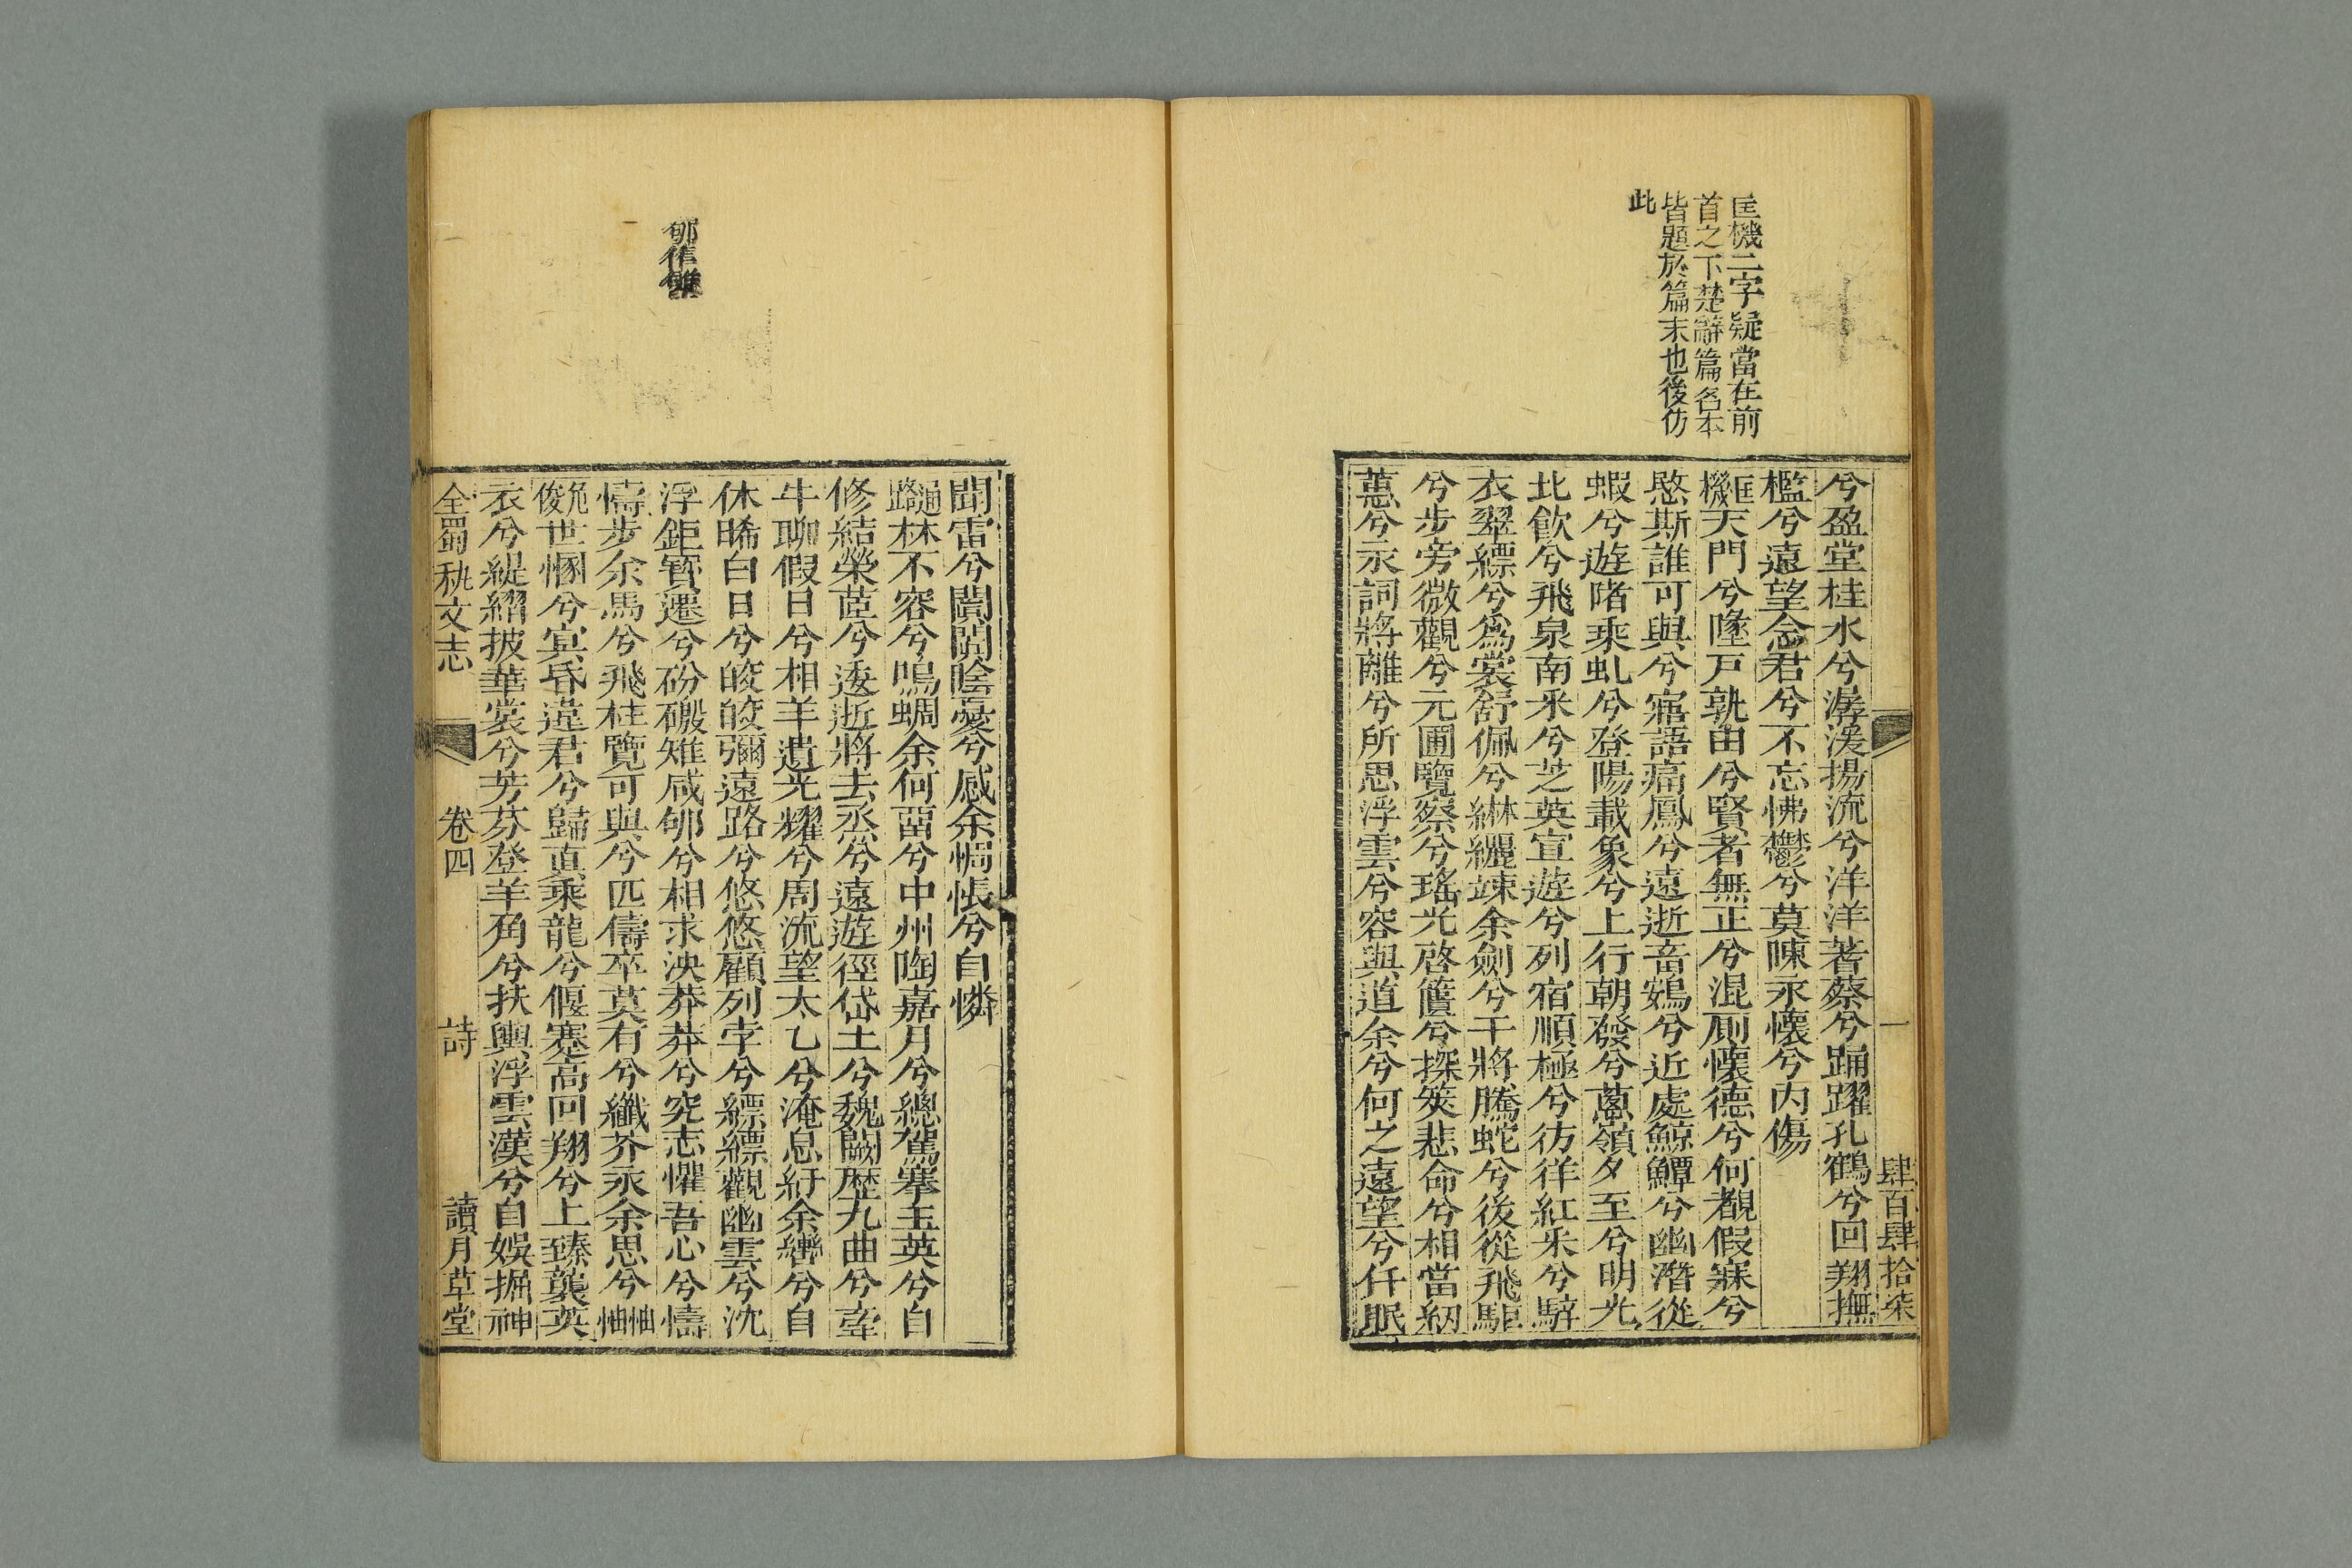 匡機二字疑當在前
首之下楚辭篇名本
皆題於篇末也後仿
此
一
肆百肆拾柒
兮盈堂桂水兮潺湲揚流兮洋洋蓍蔡兮踊躍孔鶴兮回翔撫
檻兮遠望念君兮不忘怫鬱兮莫陳永懷兮内傷
匡機天門兮墬戸孰由兮賢者無正兮混厠懷德兮何覩假寐兮
愍斯誰可與兮寤語痛鳳兮遠逝畜鴳兮近處鯨鱏兮幽潛從
蝦兮遊陼乘虬兮登陽載象兮上行朝發兮蔥嶺夕至兮明光
北飲兮飛泉南采兮芝英宣遊兮列宿順極兮彷徉紅采兮騂
衣翠縹兮爲裳舒佩兮綝纚竦余劍兮干將騰蛇兮後從飛駏
兮步旁微觀兮元圃覽察兮瑤光啓匱兮探筴悲命兮相當紉
蕙兮永詞將離兮所思浮雲兮容與道余兮何之遠望兮仟眠
聞雷兮闐闐陰憂兮感余惆悵兮自憐
通路林不容兮鳴蜩余何畱兮中州陶嘉月兮總駕搴玉英兮自
修結榮茝兮逶逝將去烝兮遠遊徑岱土兮魏闕歷九曲兮牽
牛聊假日兮相羊遺光燿兮周流望太乙兮淹息紆余轡兮自
休晞白日兮皎皎彌遠路兮悠悠顧列孛兮縹縹觀幽雲兮沈
浮鉅寶遷兮砏磤雉咸雊兮相求泱莽莽兮究志懼吾心兮懤
懤步余馬兮飛柱覽可與兮匹儔卒莫有兮纖芥永余思兮怞怞
危俊世惽兮冥昬違君兮歸眞乘龍兮偃蹇高回翔兮上臻襲英
衣兮緹䌌披華裳兮芳芬登羊角兮扶輿浮雲漢兮自娛握神
全蜀秇文志
卷四
詩
讀月草堂